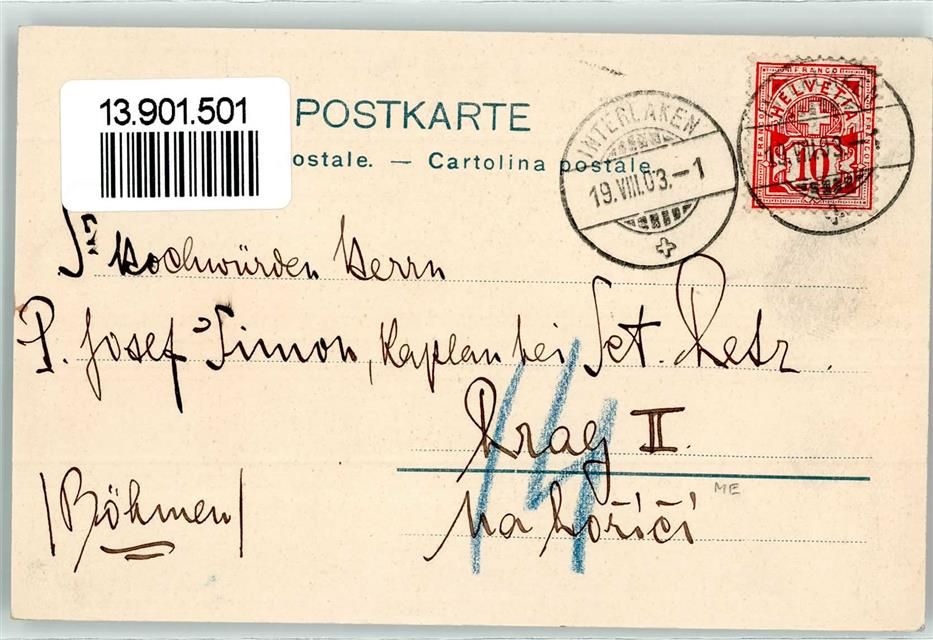 13.901.501
POSTKARTE
ostale. — Cartolina postale.
INTERLAKEN
19.VIII.03.–1
FRANCO
HELVETIA
10
Sr Hochwürden Herrn
P. Josef Simon, Kaplan bei Sct. Petr.
Prag II.
ME
Na Poříčí
|Böhmen|
14